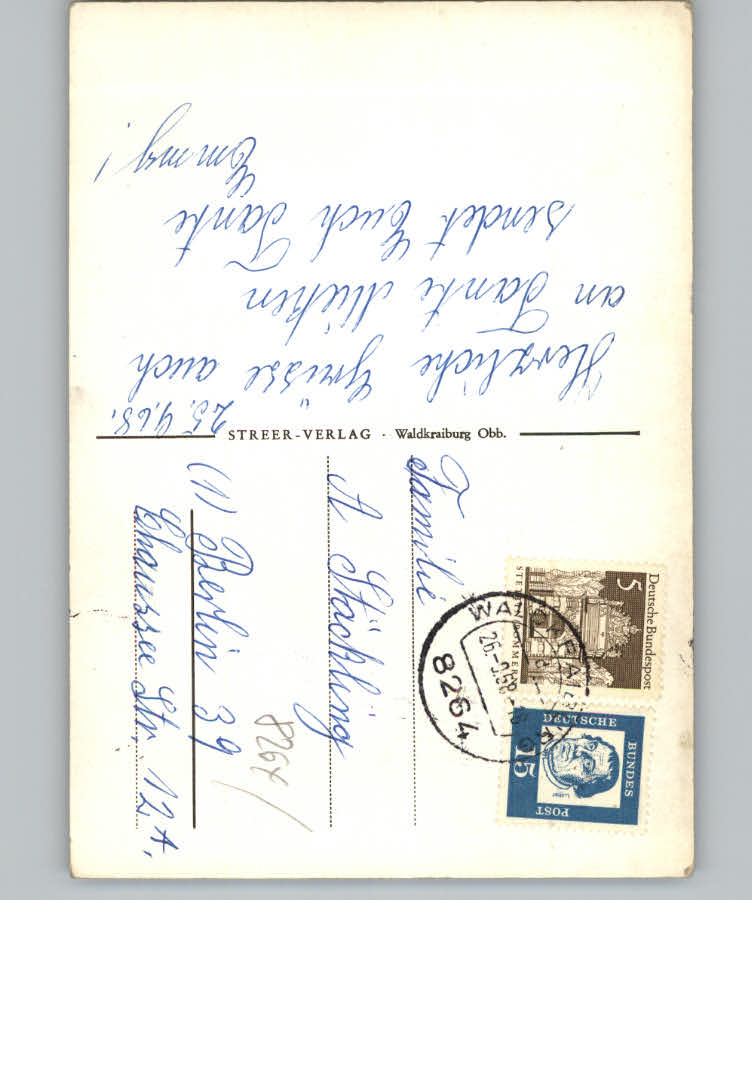 25.4.68.
Herzliche Grüsse auch
an Tante
sendet Euch Tante
Emmy!
STREER-VERLAG · Waldkraiburg Obb.
Familie
A Stöckling
(1) Berlin 39
Chaussee Str. 12A.
8264
8264
Deutsche Bundespost
5
DEUTSCHE
BUNDES
POST
15
Luther